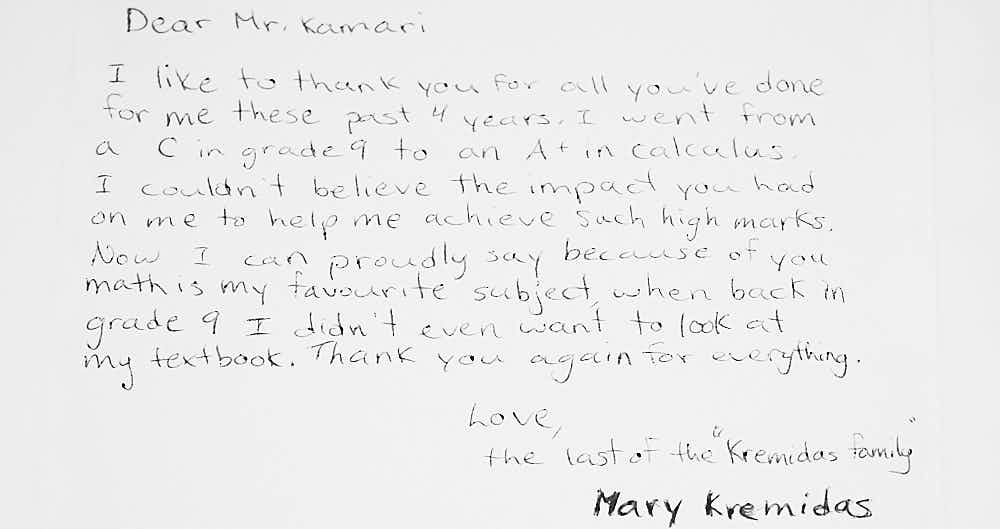 Dear Mr. Kamari
I like to thank you for all you've done
for me these past 4 years. I went from
a C in grade 9 to an A+ in calculus.
I couldn't believe the impact you had
on me to help me achieve such high marks.
Now I can proudly say because of you
math is my favourite subject, when back in
grade 9 I didn't even want to look at
my textbook. Thank you again for everything.
Love,
the last of the "Kremidas family"
Mary Kremidas